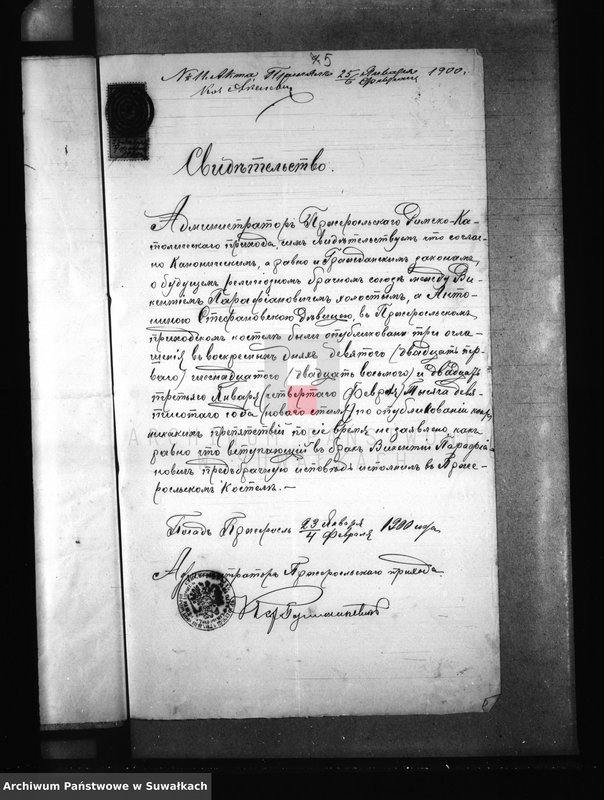 5
№ 11. Акта, 25 Января 1900.
6 Февраля
Свидѣтельство.
Администраторъ Пржерольскаго Римско-Ка-
толическаго прихода, симъ свидѣтельствуетъ что соглас-
но Каноническимъ, а равно и Гражданскимъ законамъ,
о будущемъ религіозномъ брачномъ союзѣ между Ви-
кентіемъ Парафіановичемъ холостымъ, а Анто-
ниною Стефановскою дѣвицею, въ Пржерольскомъ
приходскомъ костелѣ были опубликованы три огла-
шенія въ воскресныхъ дняхъ девятаго (двадцать пер-
ваго) шеснадцатаго (двадцать восьмого) и двадцать
третьяго Января (четвертаго Февраля) тысяча девя-
тисотаго года (новаго стиля) по опубликованіи коихъ
никакихъ препятствій по сіе время не заявлено какъ
равно что вступающій въ бракъ Викентій Парафіа-
новичъ предбрачную исповѣдь исполнилъ въ Прже-
рольскомъ Костелѣ. —
Посадъ Пржеросль 23 Января 1900 года
4 Февраля
Администраторъ Пржерольскаго прихода
Кс.
Archiwum Państwowe w Suwałkach